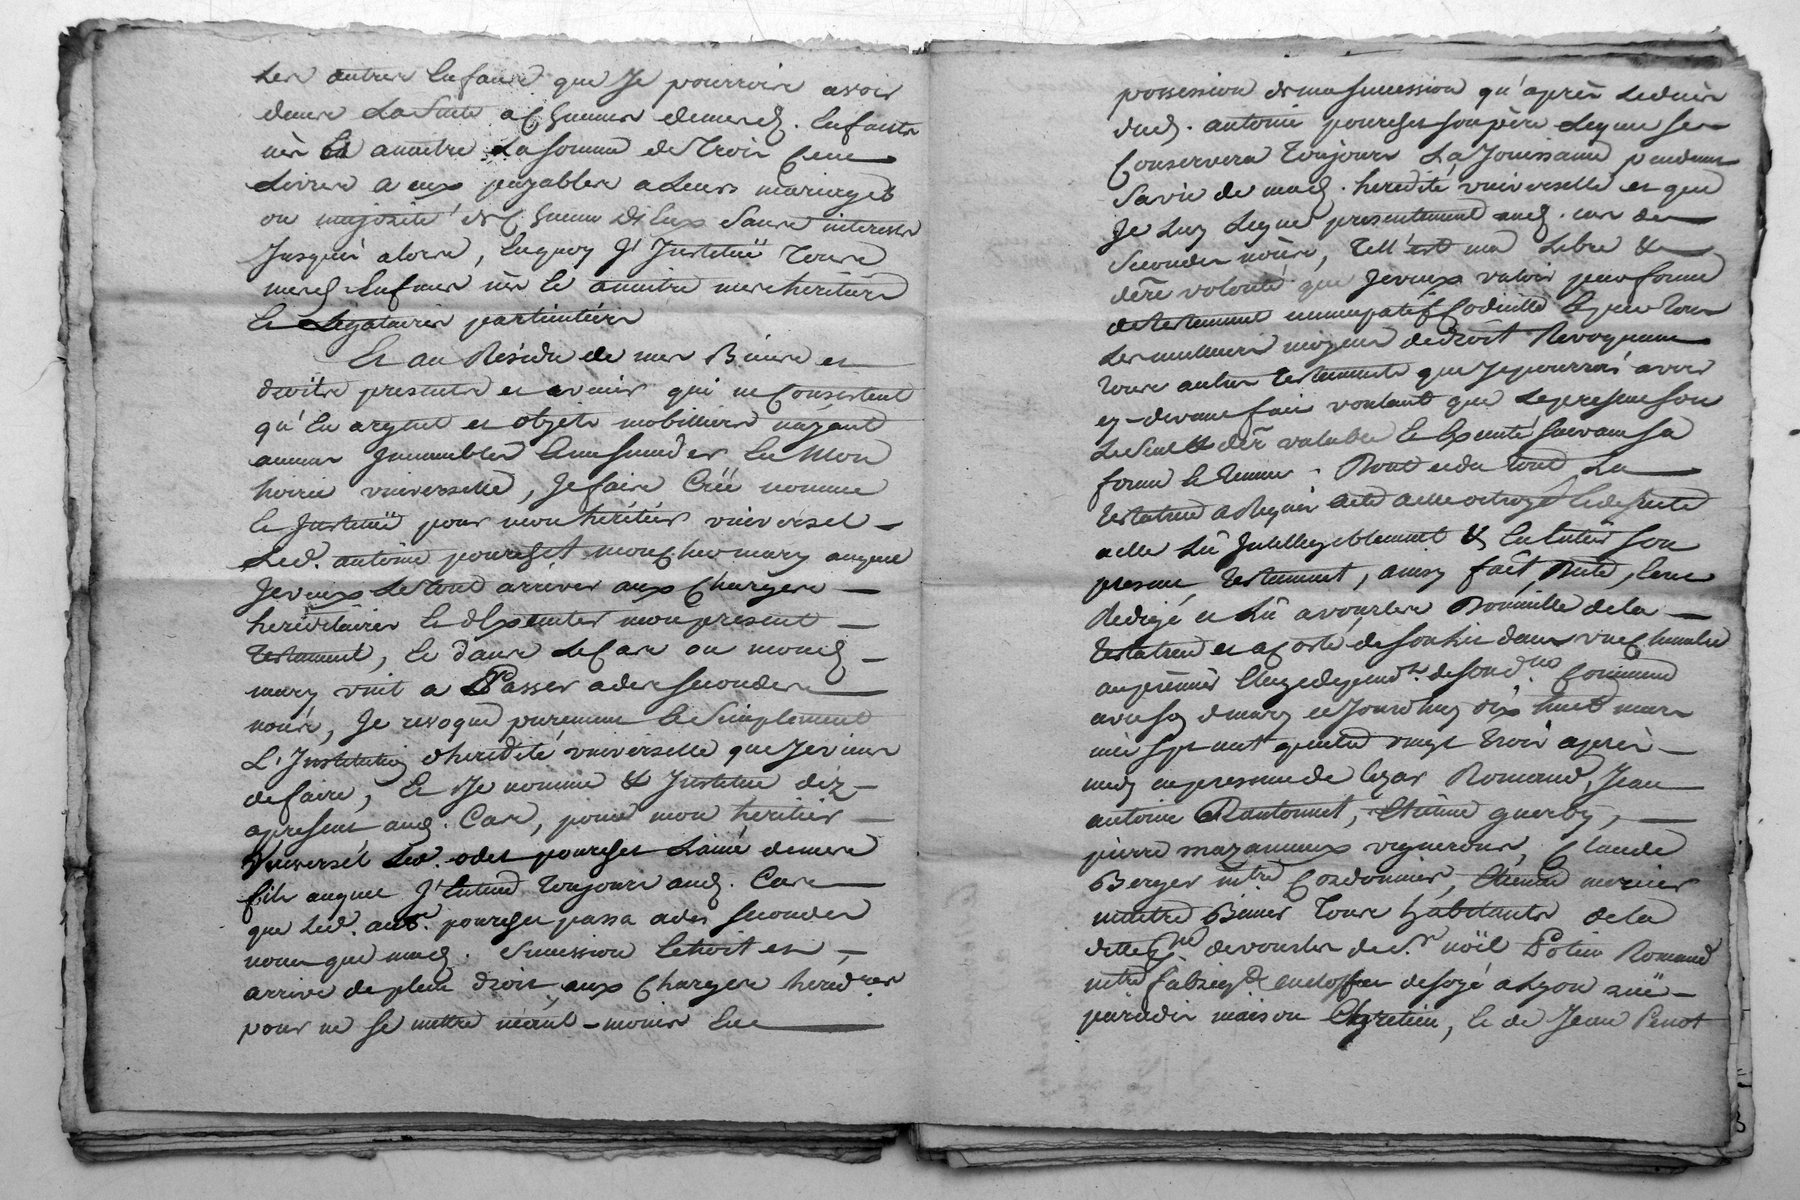 Les autres Enfans que Je pourrois avoir
dans La Suite a Chacun de mesd. Enfants
nés Et a naitre La somme de Trois Cent
Livres a eux payables a Leurs mariages
ou majorité de Chacun D'Eux Sans interets
Jusqu'a alors, Enquoy J'Institüe Tous
mesd. Enfans nés Et a naitre mes heritiers
Et Legataires particuliers
Et au Résidu de mes Biens et
droits presents et avenir qui ne Consistent
qu'En argent et objets mobilliers n'ayant
aucuns Immeubles Et me fonder En Mon
hoirie universelle, Je fais Créé nomme
Et Institüe pour mon héritier universel
Led. antoine pourchet mon Cher mary auquel
Je veux Le tout arriver aux Charges
hereditaires Et d'Executer mon present
Testament, Et dans Le Cas ou mond.
mary vint a Passer a des secondes
noces, Je revoque purement Et Simplement
L'Institution d'heredité universelle que Je viens
de faire, Et Je nomme & Institue dez
apresent aud. Cas, pour mon heritier
Universel Led. odet pourchet L'ainé de mes
fils auquel J'Entend Toujours aud. Cas
que Led. ant. pourchet passa a des secondes
noces que mad. Succession Echoit et
arrive de plein droit aux Charges hered.res
pour ne se mettre néant-moins En
possession de ma succession qu'après Le décès
dud. antoine pourchet son père Lequel se
Conservera Toujours La Jouissance pendant
Sa vie de mad. heredité universelle et que
Je Luy Legue presentement aud. cas de
Secondes nôces, Tell'est ma Libre &
dère volonté que Je veux valoir par forme
de testament nuncupatif Codicille Et par tous
Les meilleurs moyens de droit Revoquant
tous autres testaments que Je pourrois avoir
cy-devant fait voulant que Le present soit
Le seul & dèr valable Et Executé suivant sa
forme Et teneur. Dont et du tout La
testatrice a Requis acte a elle octroyé Et de suite
a elle Lû Intelligiblement & En Entier son
present testament, ainsy fait, Dicté,
Redigé et Lû a vourles Domicille de la
testatrice et a Coté de son Lit dans une Chambre
au premier Etage depend.te de son d.lle Commun
avec sd mary ce Jourd'huy dix huit mars
mil sept cent quatre vingt trois après
midy en presence de Cezar Romand, Jean
antoine Rantonnet, Etienne guerby,
pierre mazannieux vignerons, Claude
Berger m.tre Cordonnier, Etienne mercier
maitre Tous habitants de la
ditte p.sse de vourles de S.r noël Potin Romand
m.tre fabriq.t En etoffes de soye a Lyon rüe
paradis maison Chretien, Et de Jean Penot